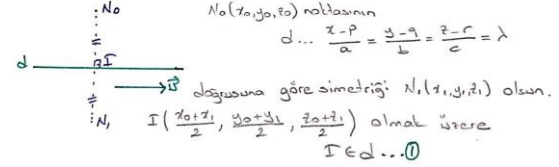 N₀
N₀(x₀,y₀,z₀) noktasının
d... \frac{x-p}{a} = \frac{y-q}{b} = \frac{z-r}{c} = λ
d
I
\vec{u}
doğrusuna göre simetriği N₁(x₁,y₁,z₁) olsun.
N₁
I(\frac{x₀+x₁}{2}, \frac{y₀+y₁}{2}, \frac{z₀+z₁}{2}) olmak üzere
I ∈ d ...①